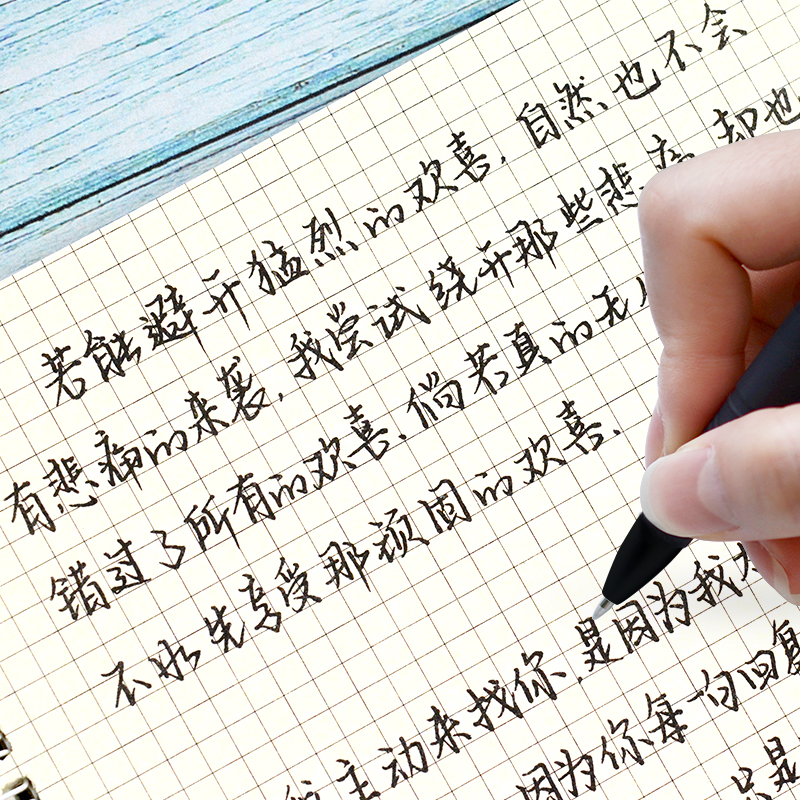 若能避开猛烈的欢喜,自然也不会
有悲痛的来袭,我尝试绕开那些悲痛,却也
错过了所有的欢喜.倘若真的无
不如先享受那顽固的欢喜.
主动来找你,是因为我
因为你每一句回复
只是